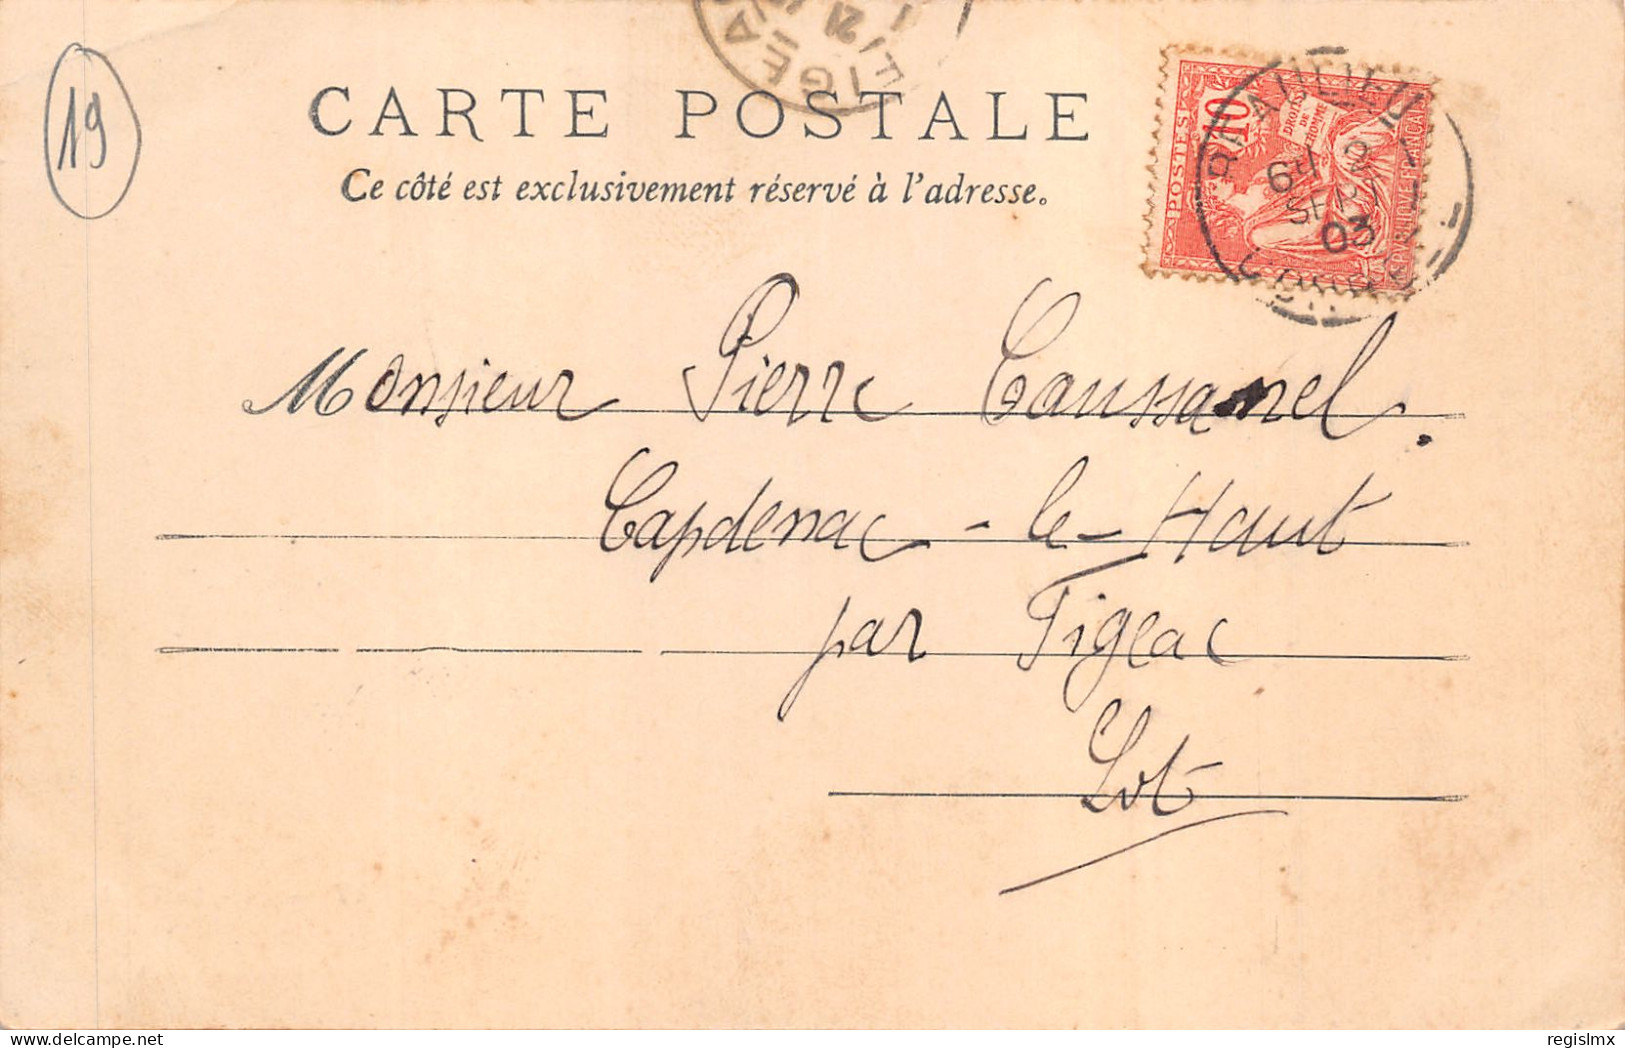 19
FIGEAC
CARTE POSTALE
Ce côté est exclusivement réservé à l'adresse.
10
POSTES
DROITS
DE
L'HOMME
REPUBLIQUE FRANÇAISE
BEAULIEU
6H
SEPT
03
CORREZE
Monsieur Pierre Caussanel.
Capdenac-le-Haut
par Figeac
Lot
regislmx